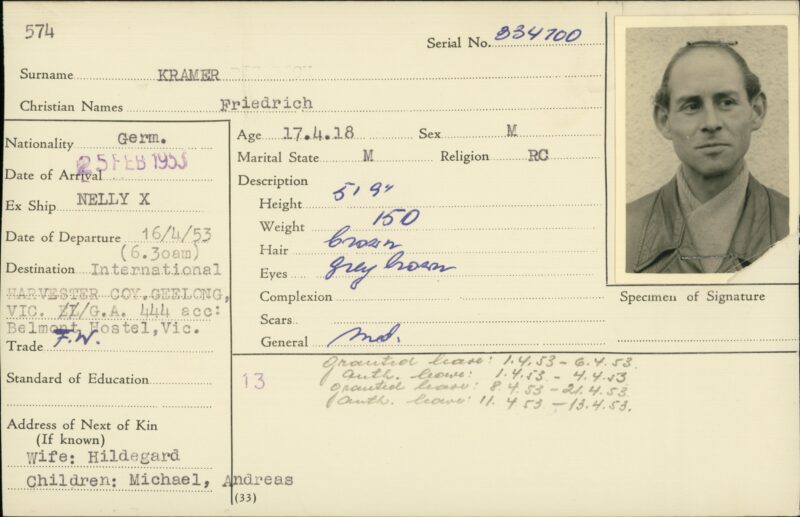 574
Serial No. 334700
Surname KRAMER
Christian Names Friedrich
Nationality Germ.
Date of Arrival 25 FEB 1953
Ex Ship NELLY X
Date of Departure 16/4/53
(6.30am)
Destination International
HARVESTER COY.GEELONG,
VIC. II/G.A. 444 acc:
Belmont Hostel,Vic.
Trade F.W.
Standard of Education
Address of Next of Kin
(If known)
Wife: Hildegard
Children: Michael, Andreas
Age 17.4.18 Sex M
Marital State M Religion RC
Description
Height 5'9"
Weight 150
Hair brown
Eyes grey brown
Complexion
Scars
General Med.
Specimen of Signature
13
Granted leave: 1.4.53 - 6.4.53.
Auth. leave: 1.4.53 - 4.4.53
Granted leave: 8.4.53 - 21.4.53.
Auth. leave: 11.4.53 - 13.4.53.
(33)